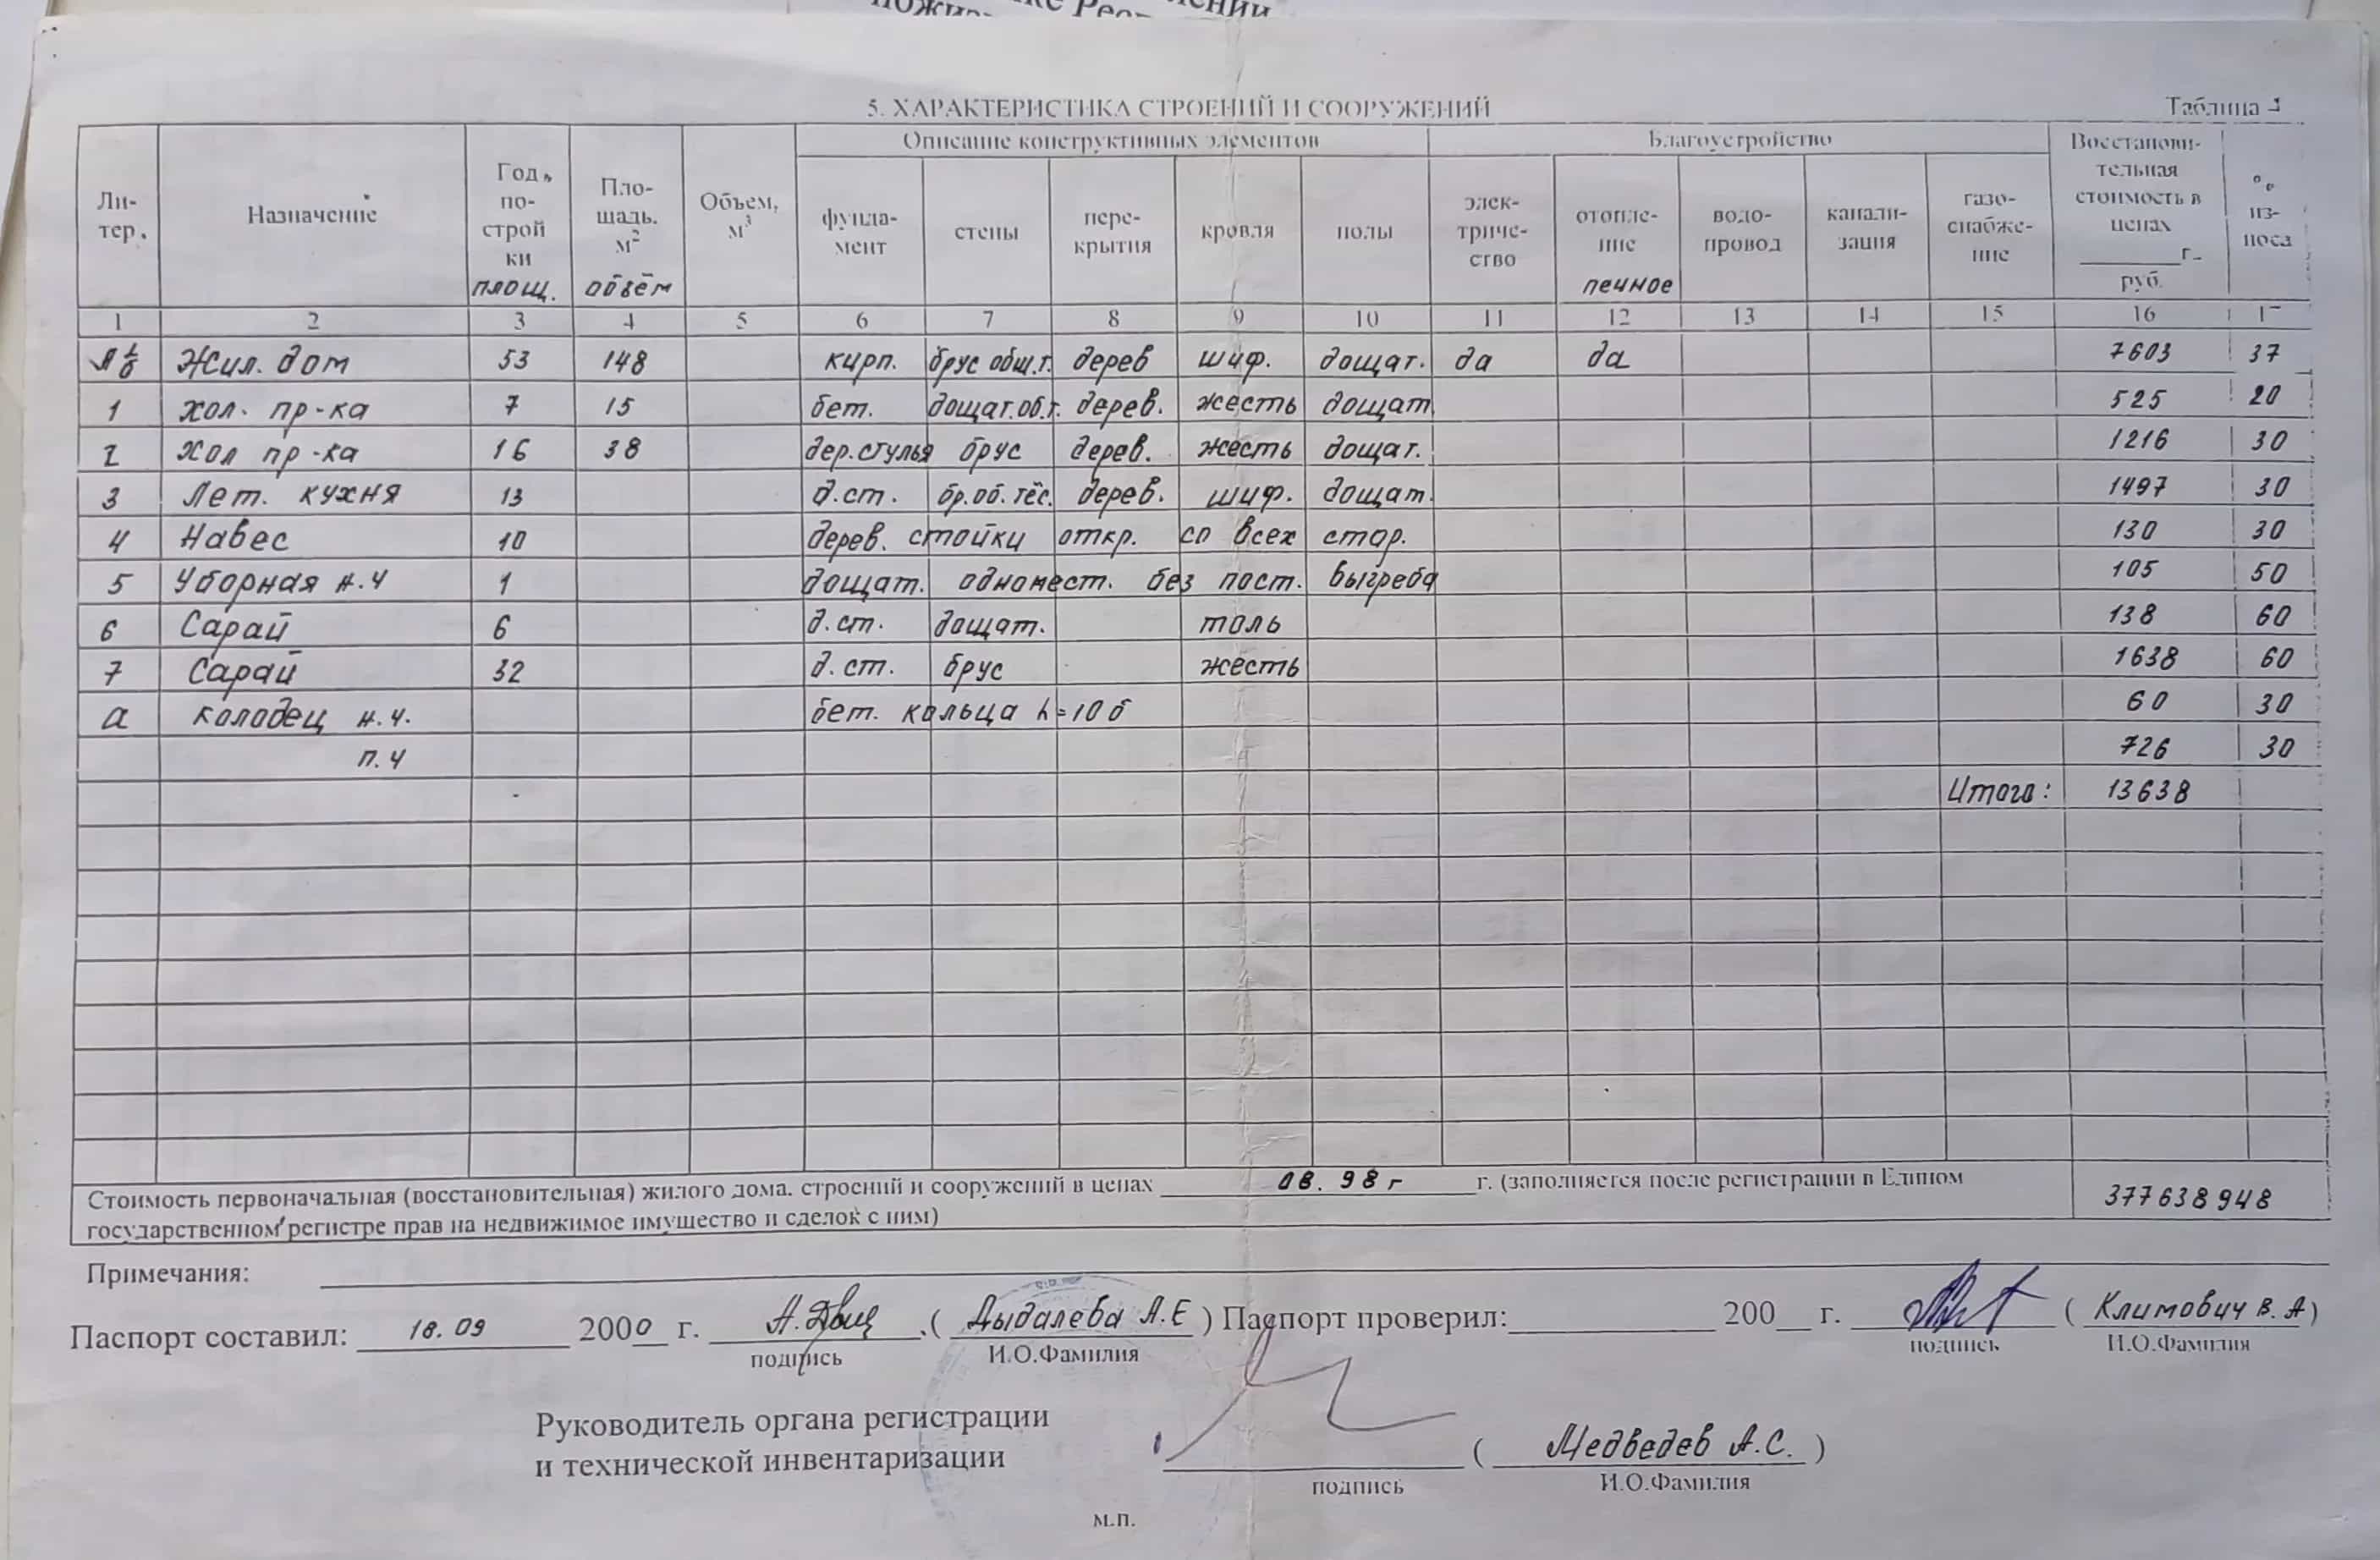 5. ХАРАКТЕРИСТИКА СТРОЕНИЙ И СООРУЖЕНИЙ
Таблица 4
Ли-тер. Назначение Год по-строй ки площ. Пло-щадь. м² объём Объем, м³ Описание конструктивных элементов Благоустройство Восстанови-тельная стоимость в ценах ______г. руб. % из-носа
фунда-мент стены пере-крытия кровля полы элек-триче-ство отопле-ние печное водо-провод канали-зация газо-снабже-ние
1 2 3 4 5 6 7 8 9 10 11 12 13 14 15 16 17
А 1/б Жил. дом 53 148 кирп. брус общ.т. дерев шиф. дощат. да да 7603 37
1 хол. пр-ка 7 15 бет. дощат.об.т. дерев. жесть дощат 525 20
2 хол пр-ка 16 38 дер.стулья брус дерев. жесть дощат. 1216 30
3 Лет. кухня 13 д.ст. бр.об.тёс. дерев. шиф. дощат. 1497 30
4 Навес 10 дерев. стойки откр. со всех стор. 130 30
5 Уборная н.ч 1 дощат. одномест. без пост. выгреба 105 50
6 Сарай 6 д.ст. дощат. толь 138 60
7 Сарай 32 д.ст. брус жесть 1638 60
а колодец н.ч. бет. кольца h=10б 60 30
п.ч 726 30
Итого: 13638
Стоимость первоначальная (восстановительная) жилого дома. строений и сооружений в ценах 08.98г г. (заполняется после регистрации в Едином
государственном регистре прав на недвижимое имущество и сделок с ним) 377638948
Примечания:
Паспорт составил: 18.09 2000 г. (Дыдалева А.Е) Паспорт проверил: 200__ г. (Климович В.А)
подпись И.О.Фамилия подпись И.О.Фамилия
Руководитель органа регистрации
и технической инвентаризации (Медведев А.С.)
подпись И.О.Фамилия
м.п.